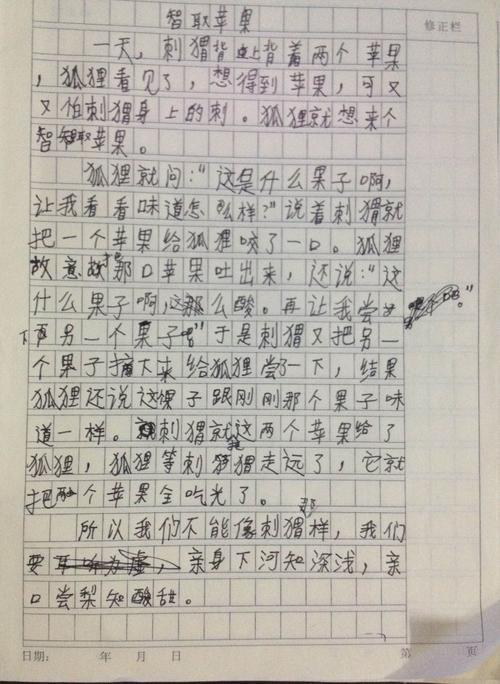 智取苹果
修正栏
一天，刺猬背上背着两个苹果
，狐狸看见了，想得到苹果，可又
又怕刺猬身上的刺。狐狸就想来个
智取苹果。
狐狸就问：“这是什么果子啊，
让我看看味道怎么样？”说着刺猬就
把一个苹果给狐狸咬了一口。狐狸
故意把那口苹果吐出来，还说：“这
什么果子啊，这那么酸。再让我尝
下另一个果子吧”于是刺猬又把另一
个果子摘下来给狐狸尝了一下，结果
狐狸还说这果子跟刚刚那个果子味
道一样。刺猬就把这两个苹果给了
狐狸，狐狸等刺猬走远了，它就
把两个苹果全吃光了。
所以我们不能像刺猬那样，我们
要亲身下河知深浅，亲
口尝梨知酸甜。
日期： 年 月 日 第 页